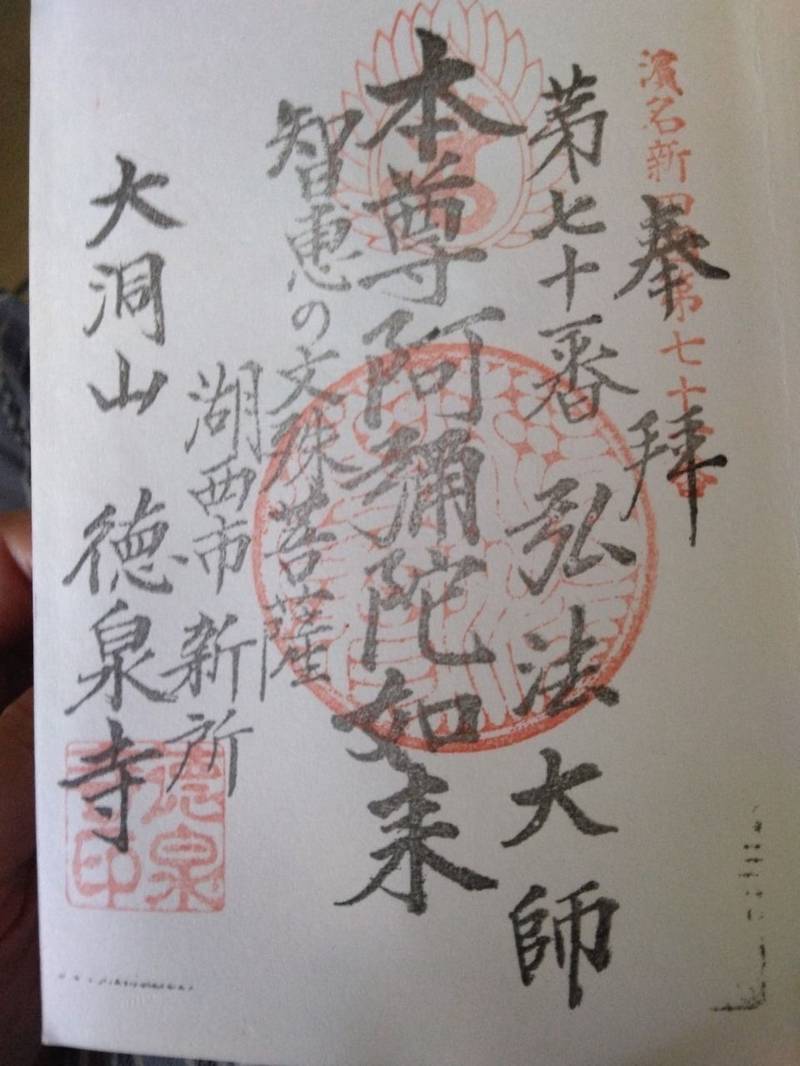 濱名新四国第七十一番
奉拝
第七十一番 弘法大師
本尊阿彌陀如来
智恵の文殊菩薩
湖西市新所
大洞山 徳泉寺
徳泉寺印